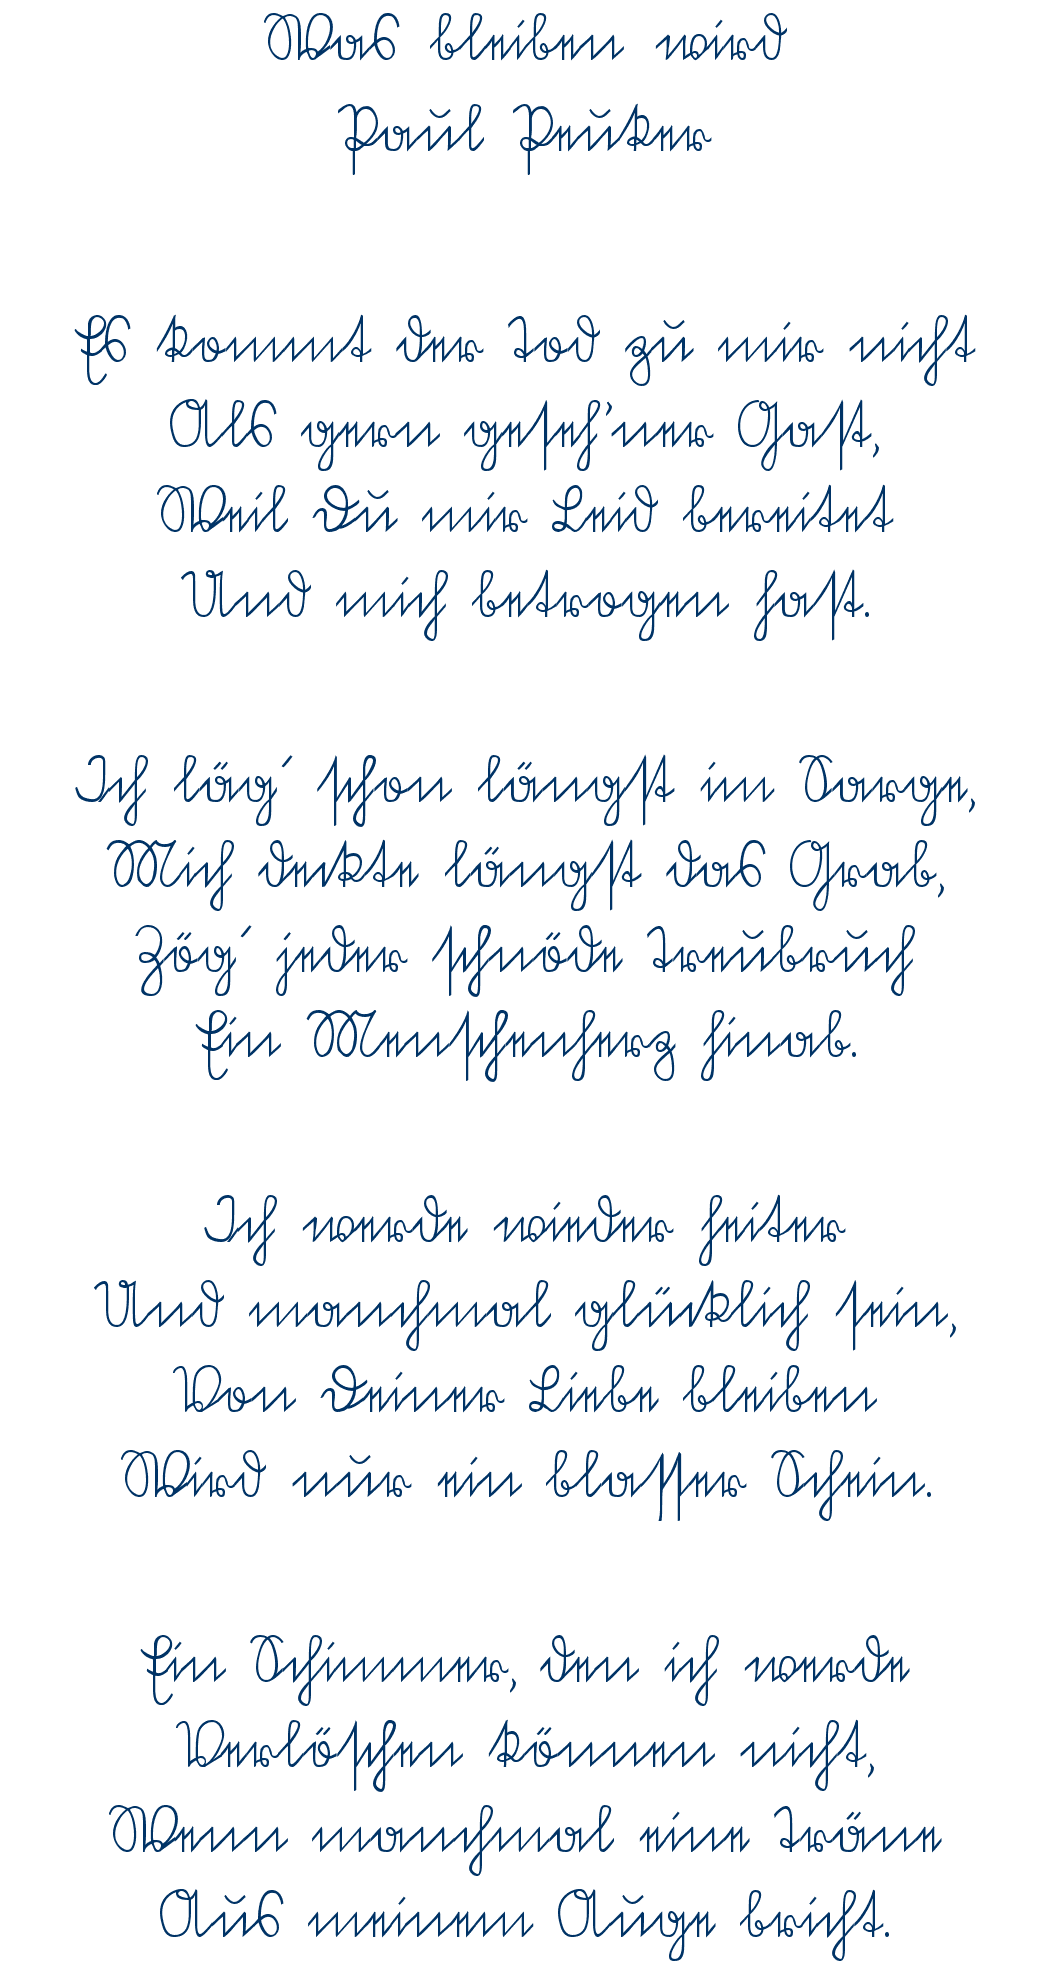 Was bleiben wird
Paul Peuker
Es kommt der Tod zu mir nicht
Als gern geseh'ner Gast,
Weil Du mir Leid bereitet
Und mich betrogen hast.
Ich läg´ schon längst im Sarge,
Mich deckte längst das Grab,
Zög´ jeder schnöde Treubruch
Ein Menschenherz hinab.
Ich werde wieder heiter
Und manchmal glücklich sein,
Von Deiner Liebe bleiben
Wird nur ein blasser Schein.
Ein Schimmer, den ich werde
Verlöschen können nicht,
Wenn manchmal eine Träne
Aus meinem Auge bricht.